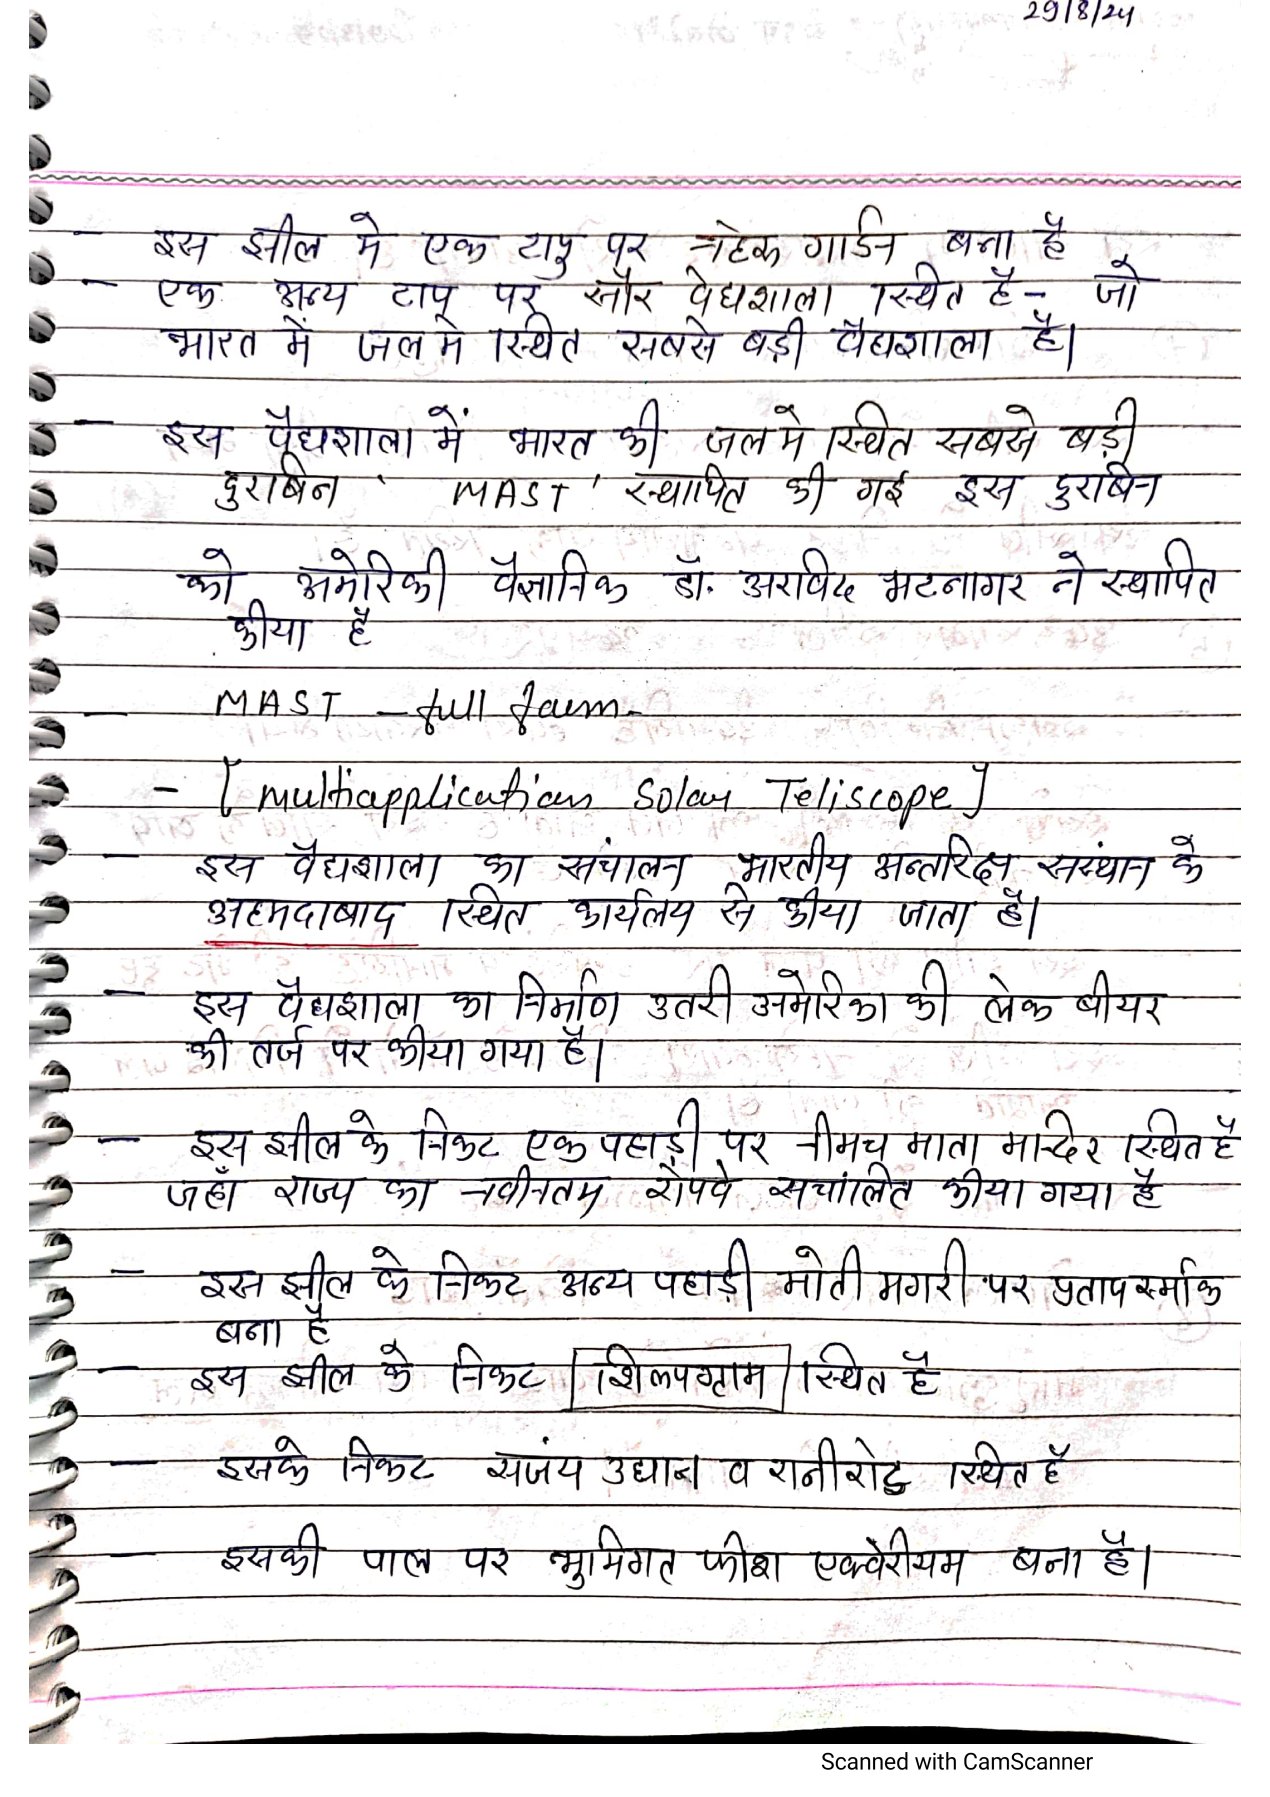 29/8/24
- इस झील मे एक टापु पर नहेरू गार्डन बना है
- एक अन्य टापु पर सौर वेद्यशाला स्थित है - जो
भारत में जल मे स्थित सबसे बड़ी वैद्यशाला है।
- इस वैद्यशाला में भारत की जल मे स्थित सबसे बड़ी
दुराबिन ' MAST ' स्थापित की गई इस दुराबिन
को अमेरिकी वैज्ञानिक डॉ. अरविद भटनागर ने स्थापित
कीया है
- MAST - full form -
- [ multiapplication Solar Teliscope ]
- इस वैद्यशाला का संचालन भारतीय अन्तरिक्ष संस्थान के
अहमदाबाद स्थित कार्यलय से कीया जाता है।
- इस वैद्यशाला का निर्माण उतरी अमेरिका की लेक बीयर
की तर्ज पर कीया गया है।
- इस झील के निकट एक पहाड़ी पर नीमच माता मन्दिर स्थित है
जहाँ राज्य का नवीनतम रोपवे सचांलित कीया गया है
- इस झील के निकट अन्य पहाड़ी मोती मगरी पर प्रताप स्र्माक
बना है
- इस झील के निकट शिल्पग्राम स्थित है
- इसके निकट सजंय उद्यान व रानी रोड स्थित है
- इसकी पाल पर भुमिगत फीश एक्वेरीयम बना है।
Scanned with CamScanner